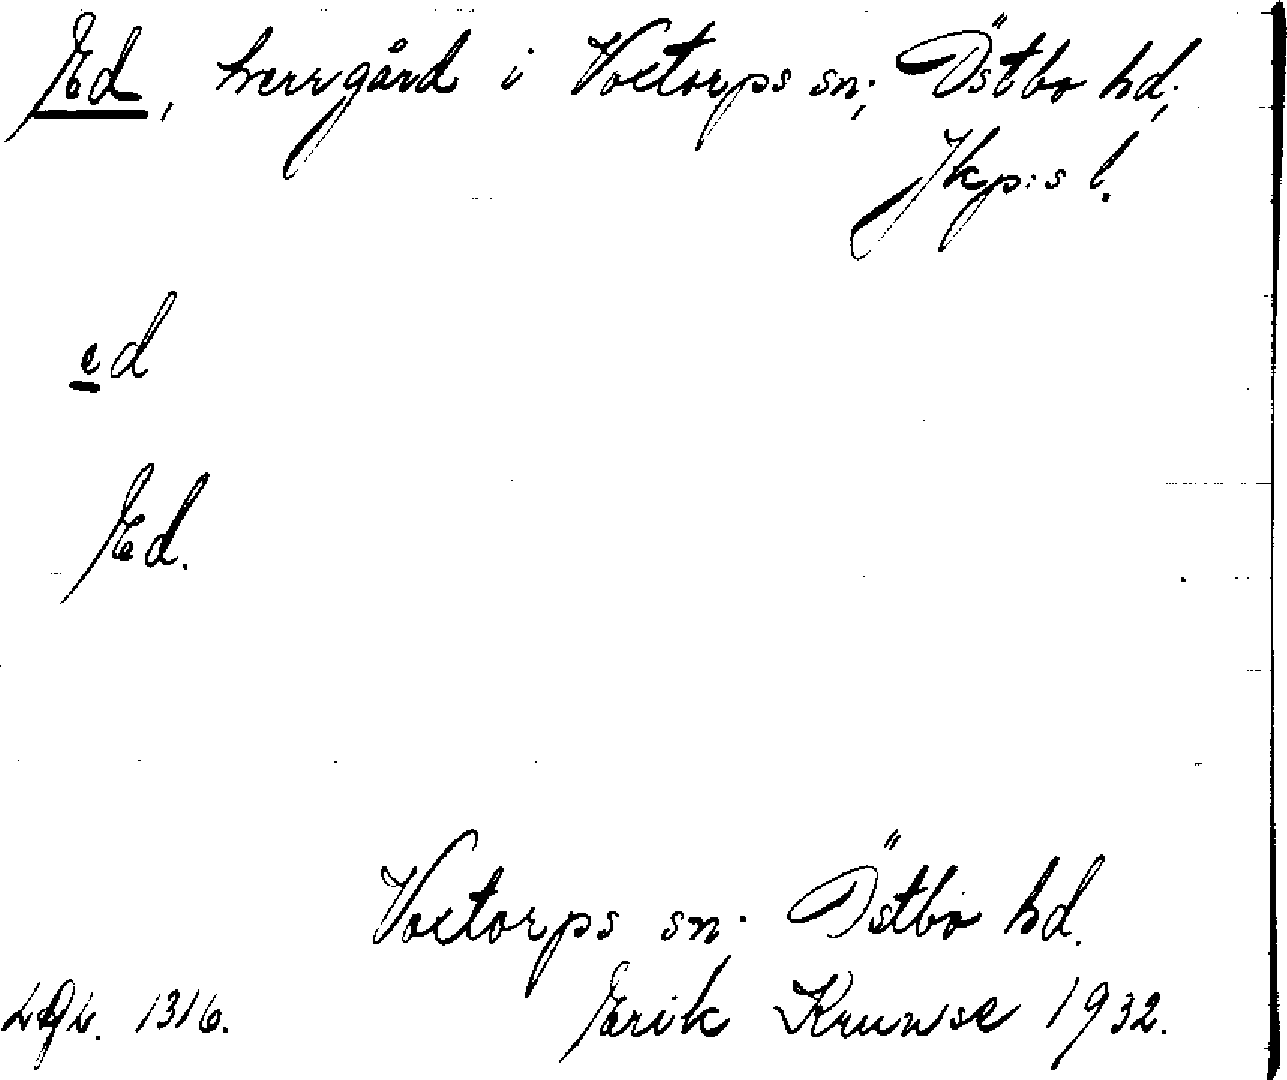 Ed, herrgård i Voxtorps sn; Östbo hd;
Jkp:s l.
ed
Ed.
Voxtorps sn. Östbo hd.
1316. Erik Kruuse 1932.